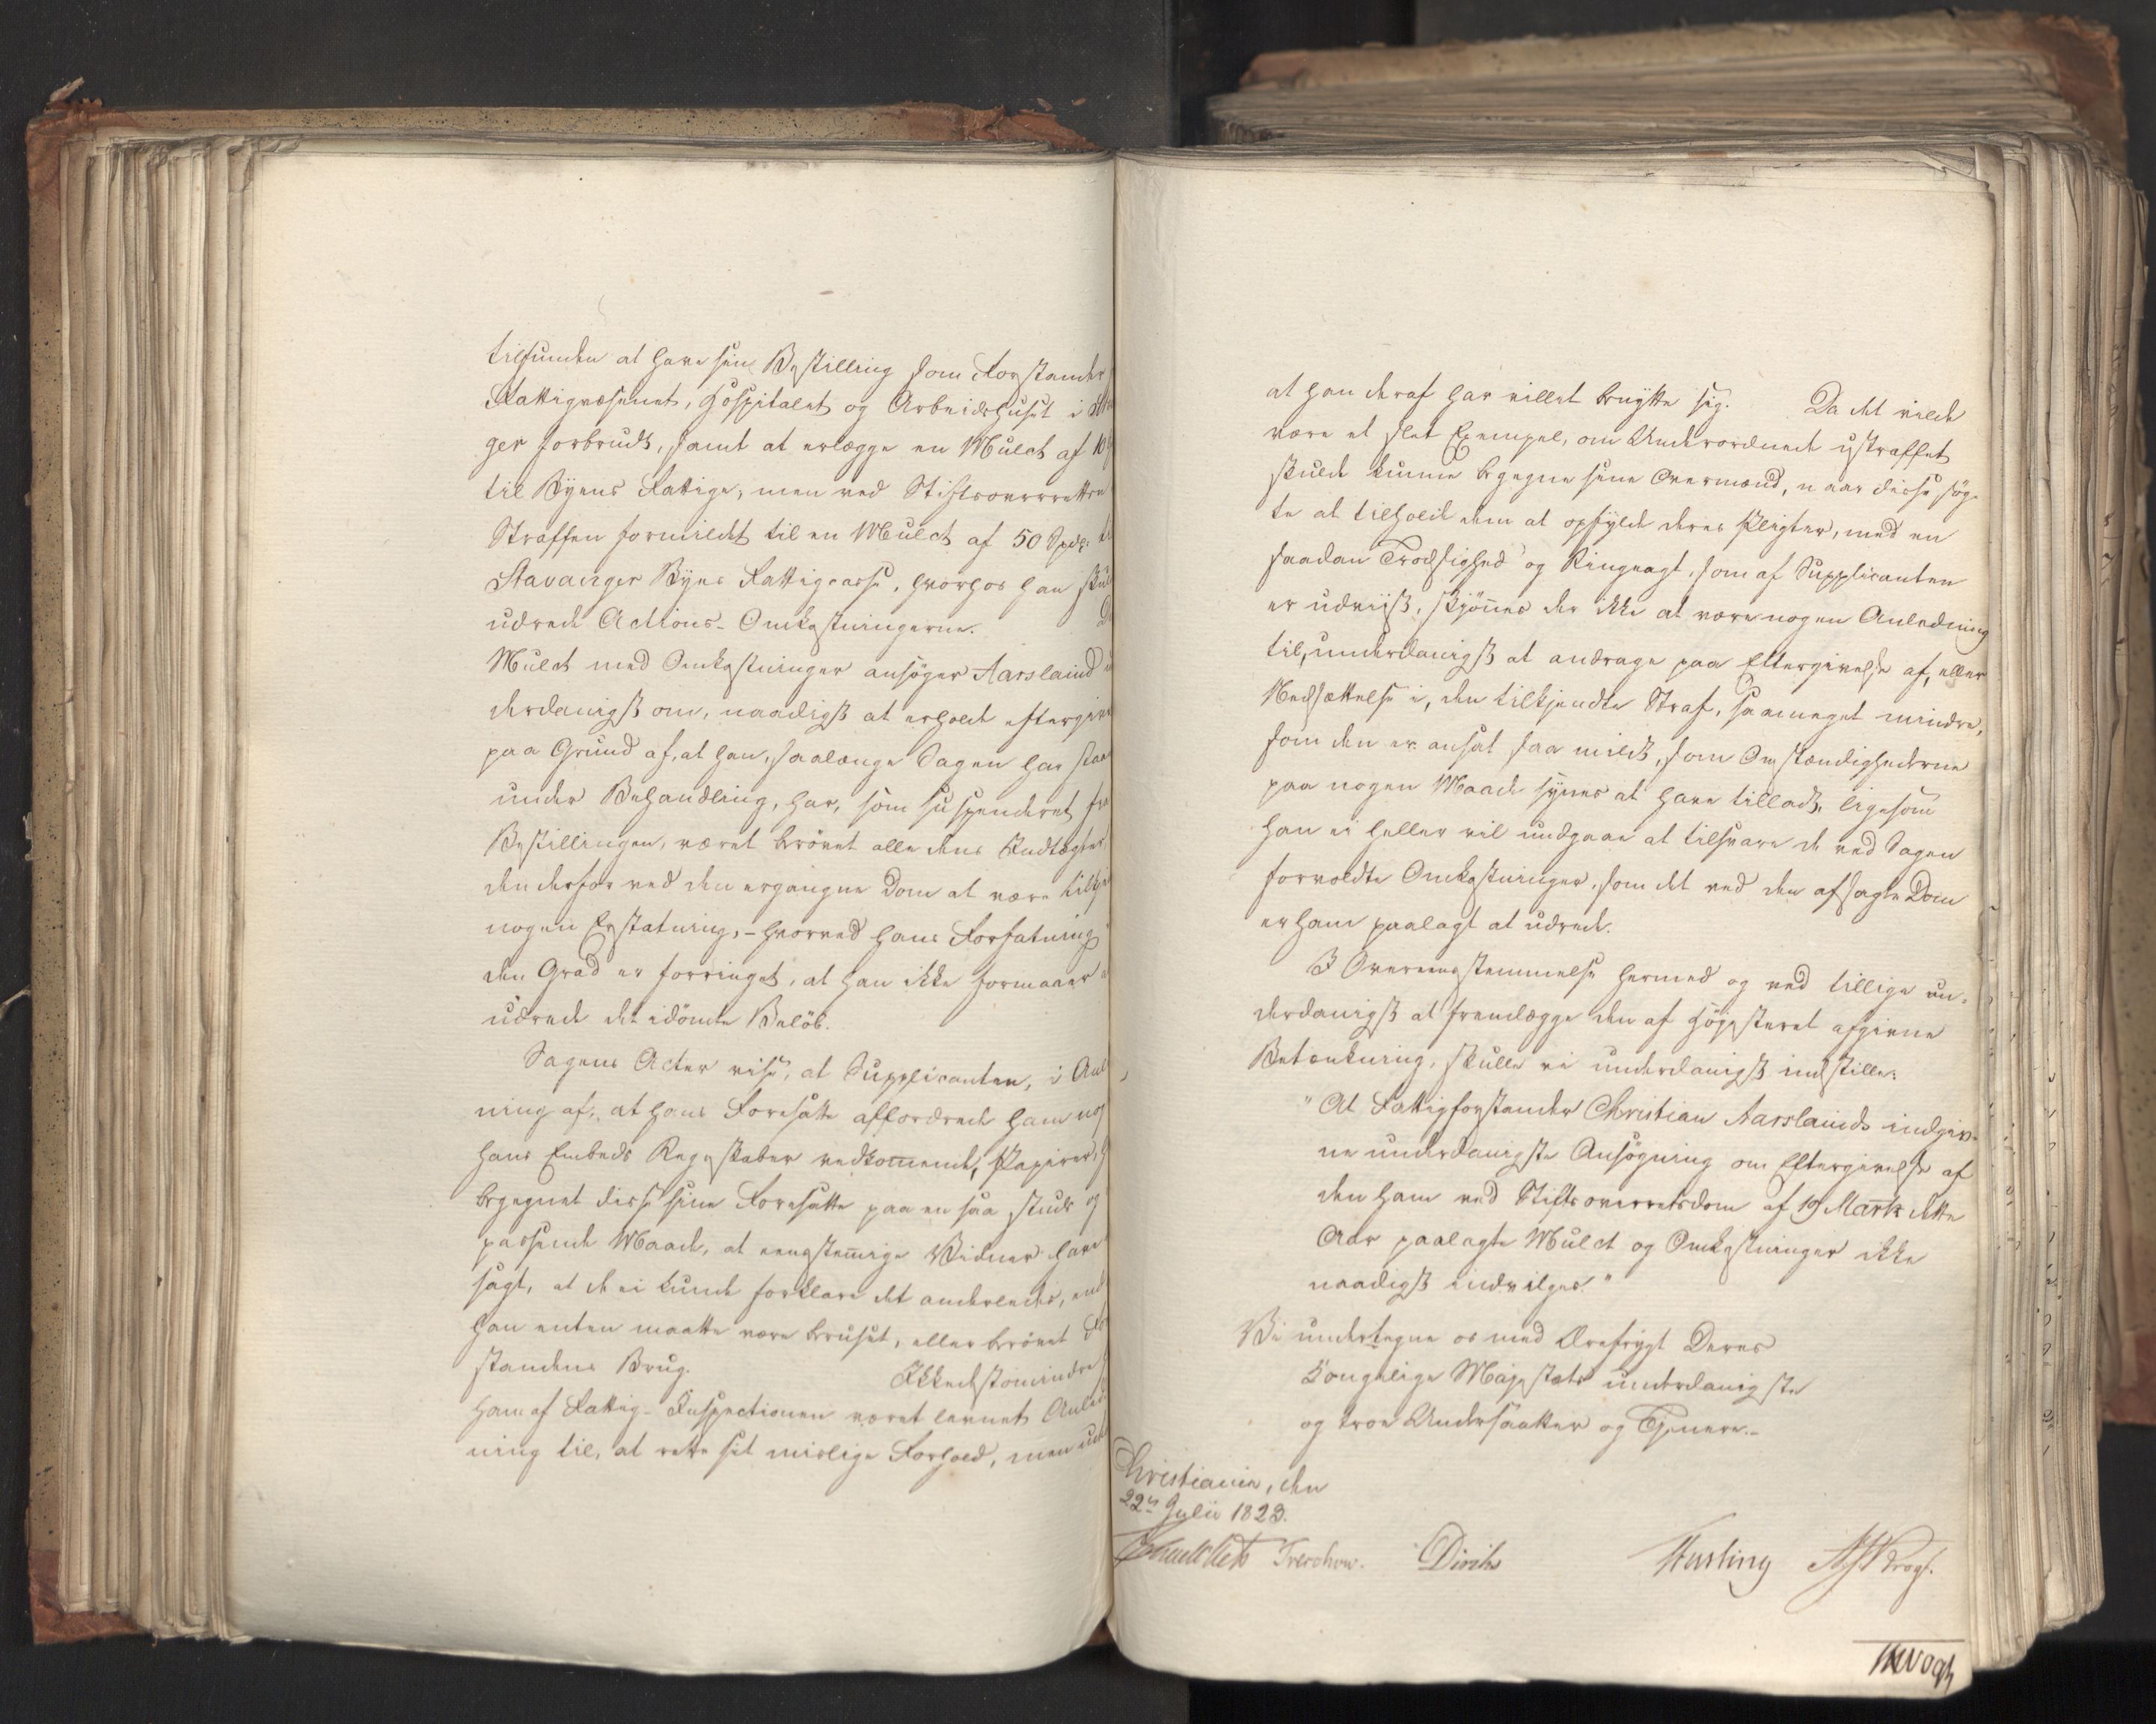 tilfunden at have sin Bestilling som Forstander
Fattigvæsenet, Hospitalet og Arbeidshuset i
ger forbrudt, samt at erlægge en Mulct af
til Byens Fattige, men ved Stiftsoverretten
Straffen formildet til en Mulct af 50 Spdl:
Stavanger Byes Fattigcasse, hvorhos han
udrede Actions-Omkostningerne.
Mulct med Omkostninger ansöger Aarsland
derdanigst om, naadigst at erholde eftergivet
paa Grund af, at han, saalænge Sagen har
under Behandling, har, som suspenderet fra
Bestillingen, været berövet alle dens Indtægter
den derfor ved den ergangne Dom at være
nogen Erstatning, - hvorved hans Forfatning
den Grad er forringet, at han ikke formaaer
udrede det idömte Belöb.
Sagens Acter vise, at Supplicanten, i Anl
ning af, at hans Foresatte affordrede ham
hans Embeds Regnskaber vedkommende Papirer,
begegnet disse sine Foresatte paa en saa studs og
passende Maade, at eenstemmige Vidner have
sagt, at de ei kunde forklare det anderledes, end
han enten maatte være beruset, eller berövet For
standens Brug. Ikkedestomindre
ham af Fattig-Inspectionen været levnet Anled
ning til, at rette sit mislige Forhold, men
at han deraf har villet benytte sig. Da det vilde
være et slet Exempel, om Underordnede ustraffet
skulde kunne begegne sine Overmænd, naar disse sög-
te at tilholde dem at opfylde deres Pligter, med en
saadan Trodsighed og Ringeagt, som af Supplicanten
er udviist, skjönnes der ikke at være nogen Anledning
til, underdanigst at andrage paa Eftergivelse af, eller
Nedsættelse i, den tilkjendte Straf, saameget mindre,
som den er ansat saa mildt, som Omstændighederne
paa nogen Maade synes at have tilladt, ligesom
han ei heller vil undgaae at tilsvare de ved Sagen
forvoldte Omkostninger, som det ved den afsagte Dom
er ham paalagt at udrede.
I Overeensstemmelse hermed og ved tillige un-
derdanigst at fremlægge den af Höjesteret afgivne
Betænkning, skulle vi underdanigst indstille:
"At Fattigforstander Christian Aarslands indgiv-
ne underdanigste Ansögning om Eftergivelse af
den ham ved Stiftsoverretsdom af 19 Marts dette
Aar paalagte Mulct og Omkostninger ikke
naadigst indvilges."
Vi undertegne os med Ærefrygt Deres
Kongelige Majestæts underdanigste
og troe Undersaatter og Tjenere.-
Christiania, den
22n Julii 1823.
Treschow. Diriks